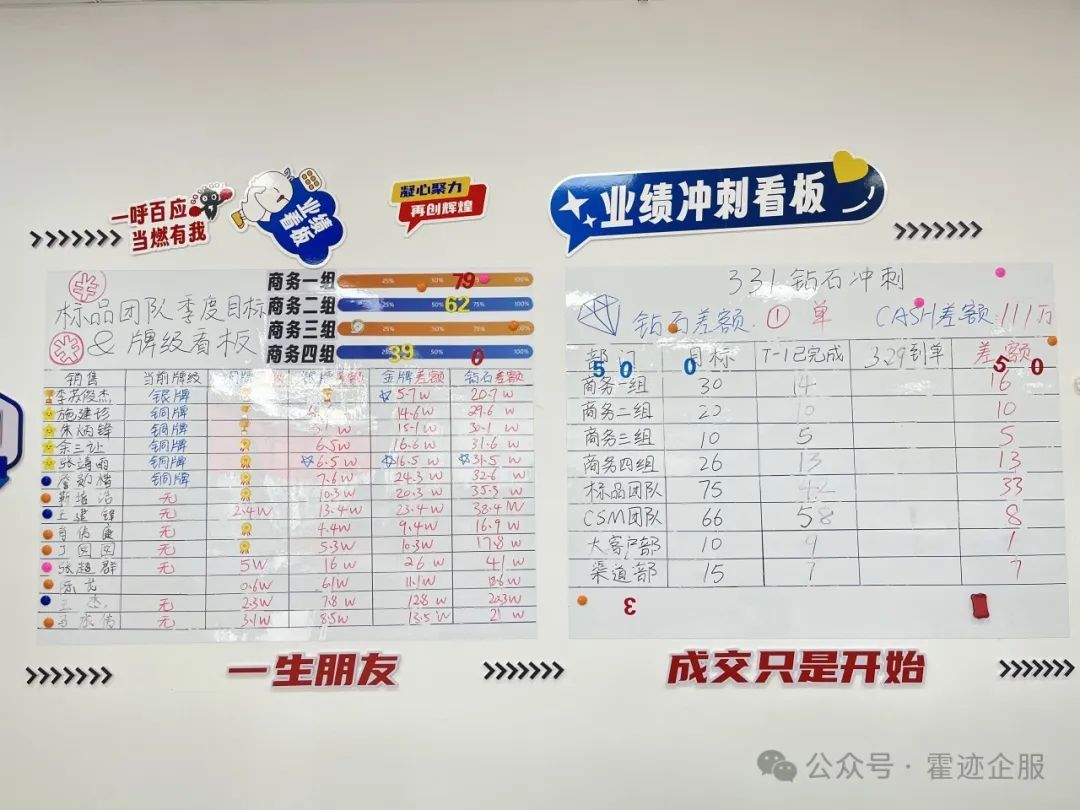 一呼百应
当燃有我
业绩
看板
凝心聚力
再创辉煌
业绩冲刺看板
标品团队季度目标
& 牌级看板
商务一组 25% 50% 79 100%
商务二组 25% 50% 62 75% 100%
商务三组 25% 50% 75% 100%
商务四组 25% 39 50% 0 100%
销售 当前牌级 金牌差额 钻石差额
李苏俊杰 银牌 5.7W 20.7W
施建珍 铜牌 14.6W 29.6W
朱炳锋 铜牌 15.1W 30.1W
余三让 铜牌 6.5W 16.6W 31.6W
张靖雨 铜牌 6.5W 16.5W 31.5W
铜牌 7.6W 24.3W 32.6W
无 10.3W 20.3W 35.3W
王建锋 无 2.4W 13.4W 23.4W 38.4W
无 4.4W 9.4W 16.9W
丁园园 无 5.3W 10.3W 17.8W
张超群 无 5W 16W 26W 41W
0.6W 6.1W 11.1W
王杰 无 2.3W 7.8W 12.8W 20.3W
无 3.1W 8.5W 13.5W 21W
331 钻石冲刺
钻石差额 ① 单 CASH差额 111万
部门 目标 T-1已完成 3.29到单 差额
5 0 0 5 0
商务一组 30 4 16
商务二组 20 10 10
商务三组 10 5 5
商务四组 26 13 13
标品团队 75 42 33
CSM团队 66 58 8
大客户部 10 9 1
渠道部 15 7 7
3
一生朋友
成交只是开始
公众号 · 霍迹企服